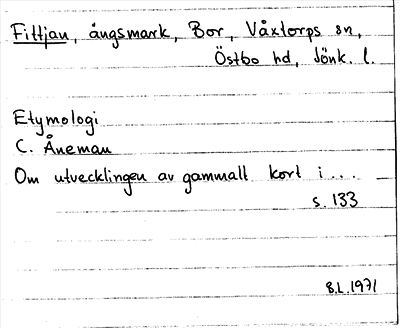 Fittjan, ängsmark, Bor, Våxtorps sn,
Östbo hd, Jönk. l.
Etymologi
C. Åneman
Om utvecklingen av gammalt kort i...
s. 133
B.L. 1971